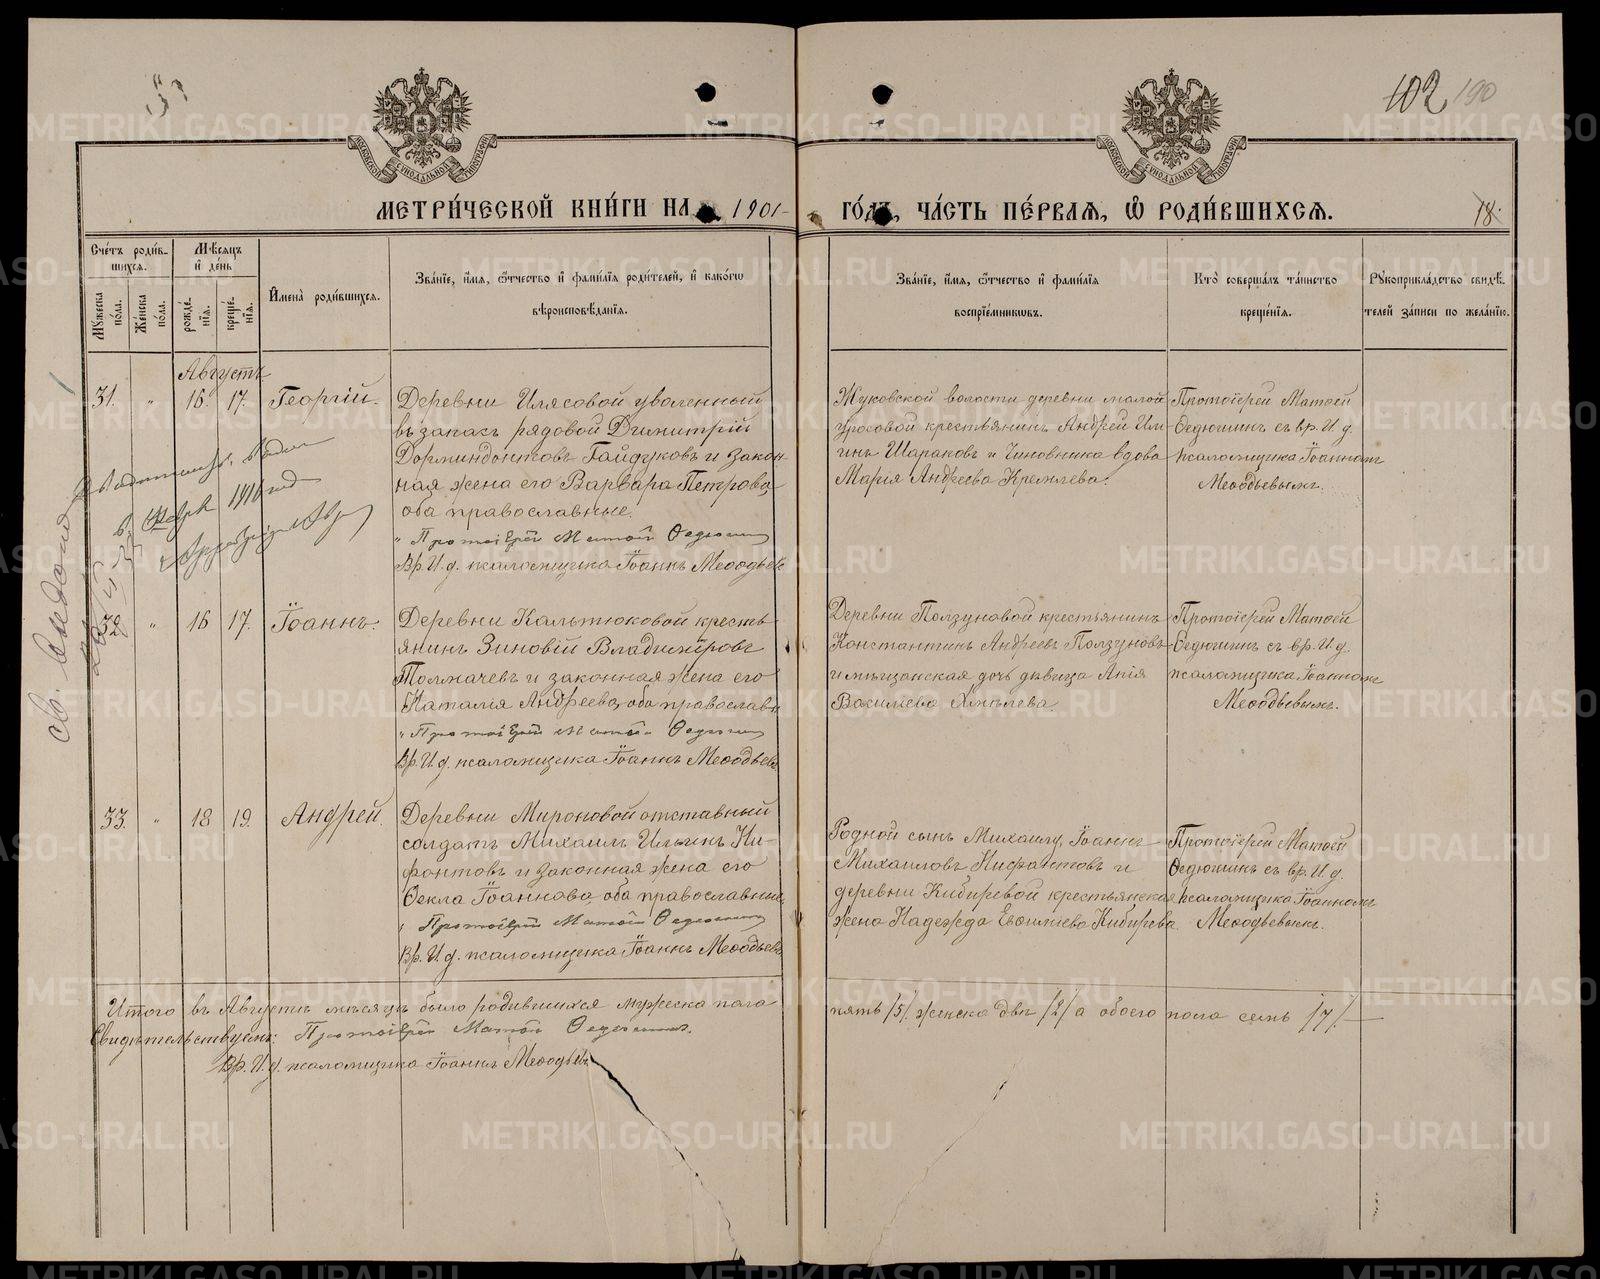 102 190
МЕТРИ́ЧЕСКОЙ КНИ́ГИ НА 1901 ГО́ДЪ, ЧА́СТЬ ПЕ́РВАЯ, Ѡ҆ РОДИ́ВШИХСЯ.
18.
Сче́тъ роди́вшихся.
Мꙋ́жеска по́ла.
Же́нска по́ла.
Мѣ́сяцъ и҆ де́нь
рожде́нїя.
креще́нїя.
И҆мена̀ роди́вшихся.
Зва́нїе, и҆́мя, ѻ҆́тчество и҆ фами́лїя роди́телей, и҆ како́гѡ
вѣроисповѣ́данїя.
Зва́нїе, и҆́мя, ѻ҆́тчество и҆ фами́лїя
воспрїе́мникѡвъ.
Кто̀ соверша́лъ та́инство
креще́нїя.
Рꙋкоприкла́дство свидѣ́телей за́писи по жела́нїю.
Августъ
31. " 16. 17. Георгій.
Деревни Илясовой уволенный
въ запасъ рядовой Димитрій
Дорминдонтовъ Гайдуковъ и закон-
ная жена его Варвара Петрова,
оба православные.
Протоіерей Матѳей Ѳедюшинъ
Вр. И. д. псаломщика Іоаннъ Меѳодьевъ
Жуковской волости деревни малой
крестьянинъ Андрей Иль-
инъ Шараковъ и Чиновника вдова
Марія Андреева Кремлева.
Протоіерей Матѳей
Ѳедюшинъ съ вр. И. д.
псаломщика Іоанномъ
Меѳодьевымъ.
1916 год
32. " 16 17. Іоаннъ.
Деревни Кальтюковой кресть-
янинъ Зиновій Владиміровъ
Толмачевъ и законная жена его
Наталія Андреева, оба православн.
Протоіерей Матѳей Ѳедюшинъ
Вр. И. д. псаломщика Іоаннъ Меѳодьевъ
Деревни Ползуновой крестьянинъ
Константинъ Андреевъ Ползуновъ
и мѣщанская дочь дѣвица Анія
Васильева Хмѣлева.
Протоіерей Матѳей
Ѳедюшинъ съ вр. И. д.
псаломщика Іоанномъ
Меѳодьевымъ.
33. " 18 19. Андрей.
Деревни Мироновой отставный
солдатъ Михаилъ Ильинъ Ни-
фонтовъ и законная жена его
Ѳекла Іоаннова, оба православные.
Протоіерей Матѳей Ѳедюшинъ
Вр. И. д. псаломщика Іоаннъ Меѳодьевъ
Родной сынъ Михаилу, Іоаннъ
Михаиловъ Нифантовъ и
деревни Кибиревой крестьянская
жена Надежда Евѳиміева Кибирева.
Протоіерей Матѳей
Ѳедюшинъ съ вр. И. д.
псаломщика Іоанномъ
Меѳодьевымъ.
Итого въ Августѣ мѣсяцѣ было родившихся мужеска пола пять /5/ женска двѣ /2/ а обоего пола семь /7/.
Свидѣтельствуемъ: Протоіерей Матѳей Ѳедюшинъ.
Вр. И. д. псаломщика Іоаннъ Меѳодьевъ
METRIKI.GASO-URAL.RU